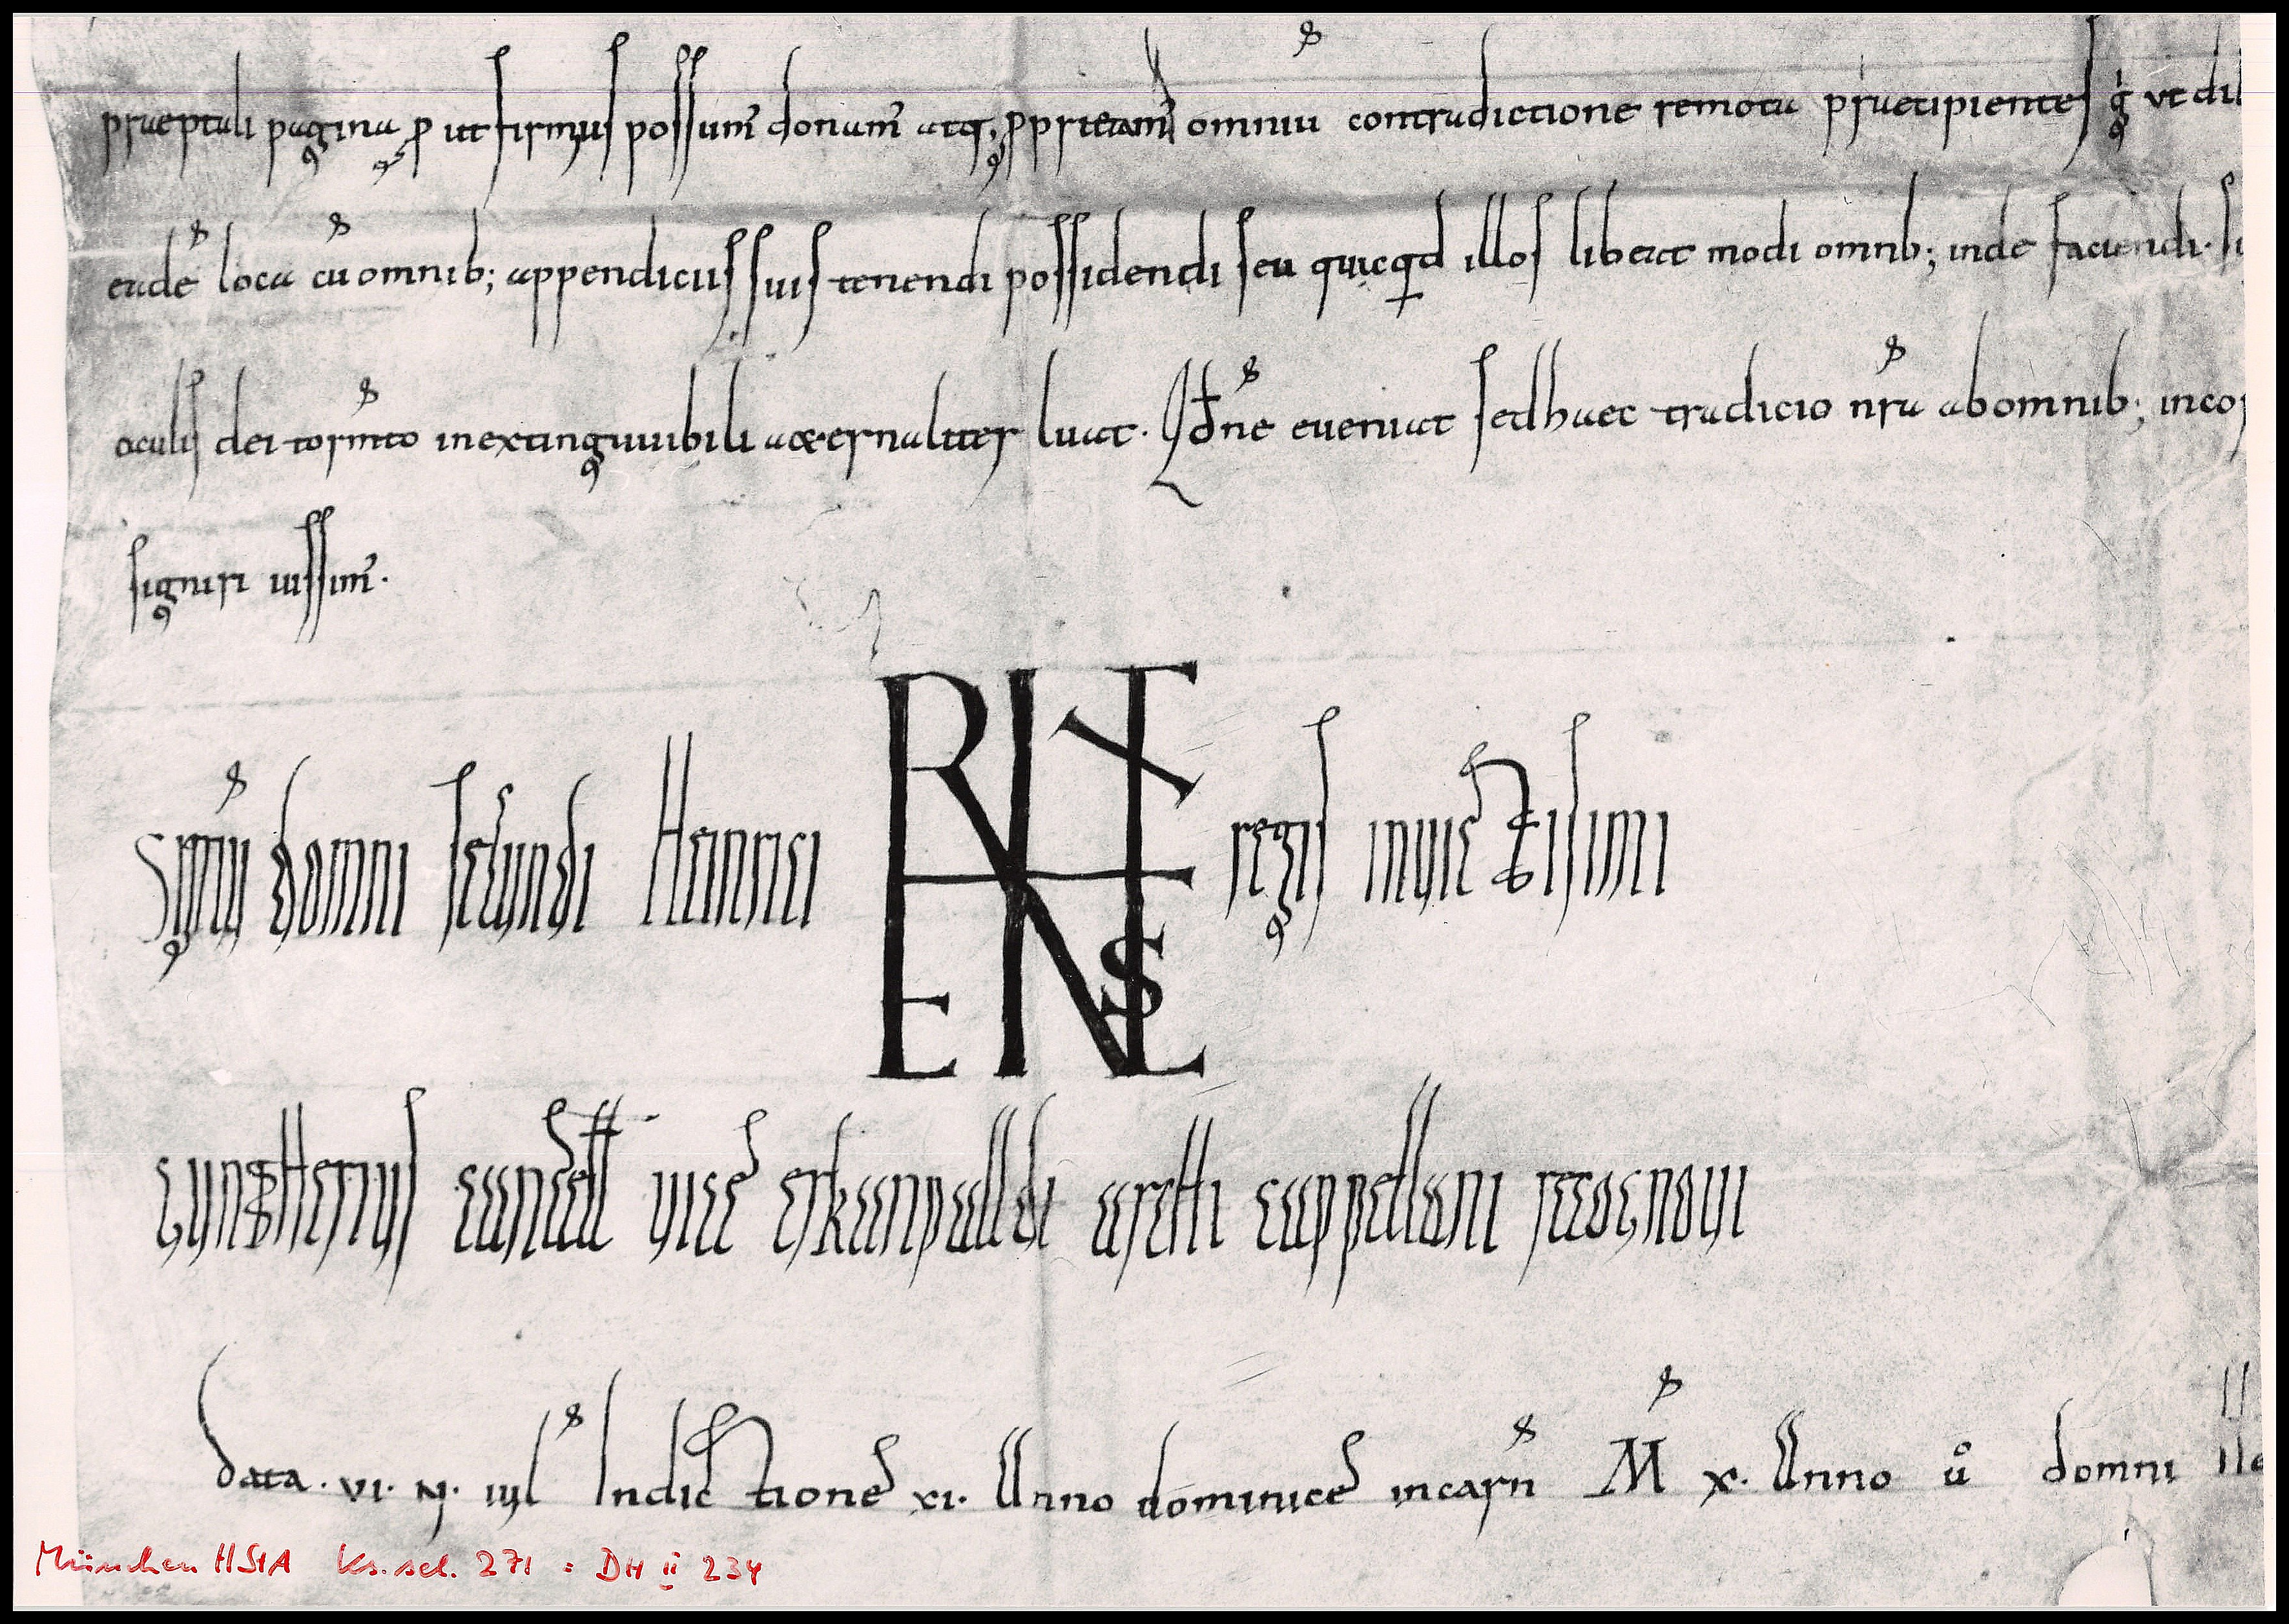 praeptali pagina p ut firmus possum̄ donam̄ atq; ppriam̄ omniū contradictione remota praecipientes g̊ vt
eade loca cū omnib; appendiciis suis tenendi possidendi seu quicqd illos liberet modi omnb; inde faciendi.
oculis dei torm̄to inextinguuibili aeternaliter luat. Qd̄ ne eveniat sed haec tradicio nr̄a ab omnib;
signiri iussim̄.
Signū domni secundi Heinrici regis invictisimi
gunstherius cancell vice erkanpalldi archi cappellani recognovi
Data. VI. N. iul Indictione xi. Anno dominice incarn̄ M x. Anno ů domni
München HStA Ks. sel. 271 = DH II 234